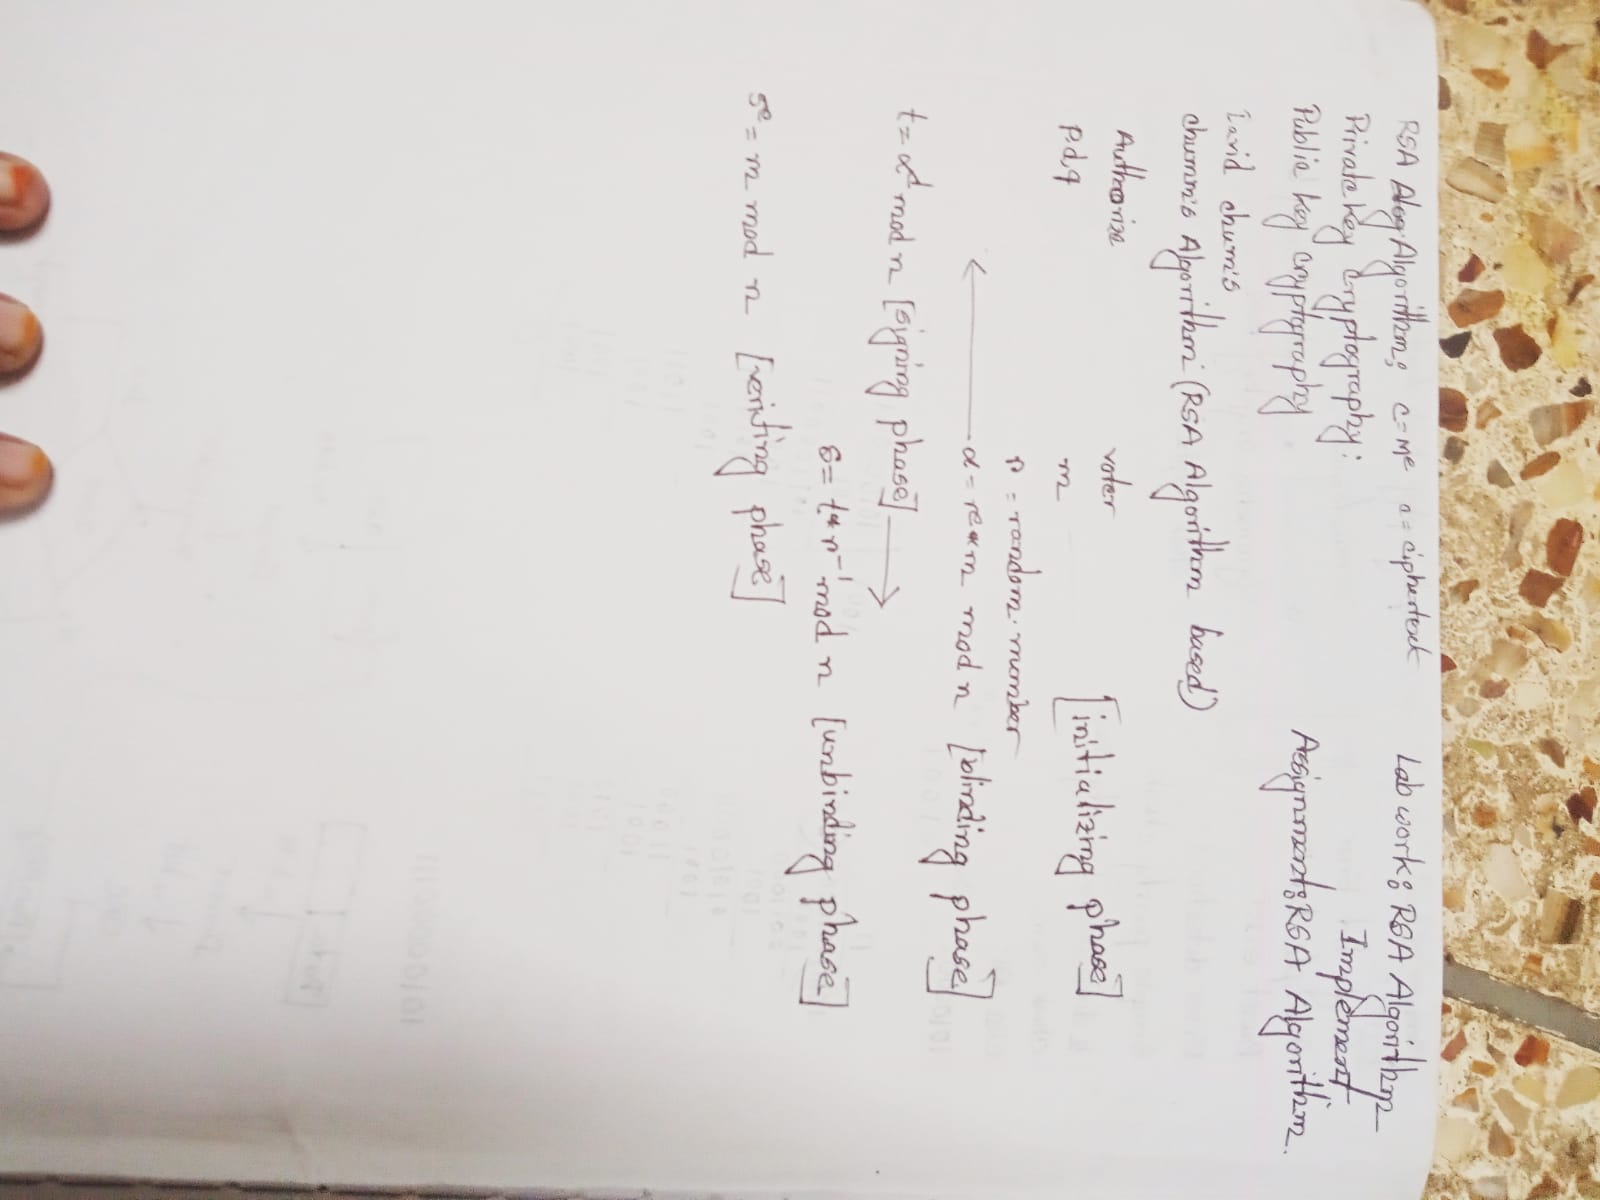 RSA Alog Algorithm; c=Mᵉ c= ciphertext
Private key cryptography:
Public key cryptography
Lab work: RSA Algorithm
Implement.
Assignment: RSA Algorithm.
David chum's
chumm's Algorithm (RSA Algorithm based)
Authorize voter [initializing phase]
p,d,q m
r = random number
α = rᵉ*m mod n [blinding phase]
t = αᵈ mod n [signing phase]
s = t*r⁻¹ mod n [unbinding phase]
sᵉ = m mod n phase]